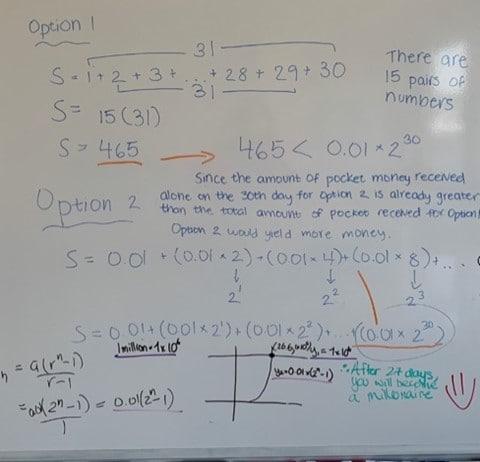 Option 1
31
S = 1 + 2 + 3 + ... + 28 + 29 + 30
31
There are
15 pairs of
numbers
S = 15(31)
S = 465 → 465 < 0.01 × 2³⁰
Since the amount of pocket money received
alone on the 30th day for Option 2 is already greater
than the total amount of pocket received for Option 1
Option 2 would yield more money.
Option 2
S = 0.01 + (0.01 × 2) + (0.01 × 4) + (0.01 × 8) + ...
2¹ 2² 2³
S = 0.01 + (0.01 × 2¹) + (0.01 × 2²) + ... + (0.01 × 2³⁰)
1 million = 1×10⁶
= a(rⁿ-1)
r-1
= (2ⁿ-1) = 0.01(2ⁿ-1)
1
y₁ = 1×10⁶
y₂=0.01×(2ⁿ-1)
∴ After 27 days,
you will become
a millionaire